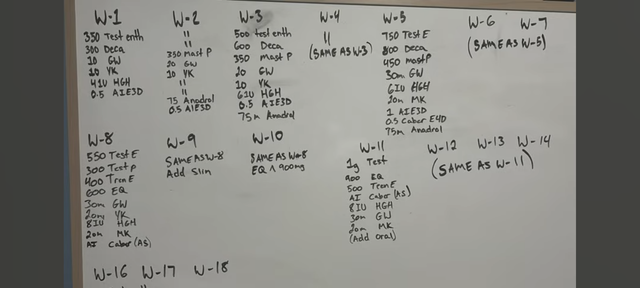 W-1
350 Test enth
300 Deca
10 GW
20 YK
4IU HGH
0.5 AIE3D
W-2
"
"
350 Mast P
20 GW
10 YK
"
"
75 Anadrol
0.5 AIE3D
W-3
500 test enth
600 Deca
350 mast P
20 GW
10 YK
6IU HGH
0.5 AIE3D
75m Anadrol
W-4
"
(SAME AS W-3)
W-5
750 Test E
800 Deca
450 mast P
30m GW
6IU HGH
20m MK
1 AIE3D
0.5 Caber E4D
75m Anadrol
W-6 W-7
(SAME AS W-5)
W-8
550 Test E
300 Test P
400 Tren E
600 EQ
30m GW
20m YK
8IU HGH
20m MK
AI Caber (AS)
W-9
SAME AS W-8
Add Slin
W-10
SAME AS W-8
EQ ^ 900mg
W-11
1g Test
900 EQ
500 Tren E
AI Caber (AS)
8IU HGH
30m GW
20m MK
(Add oral)
W-12 W-13 W-14
(SAME AS W-11)
W-16 W-17 W-18